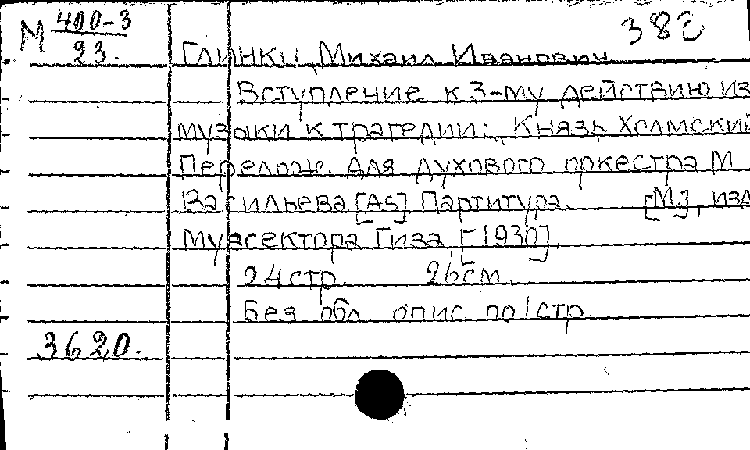 М 400-3
23.
382
Глинки, Михаил Иванович
Вступление к 3-му действию из
музыки к трагедии: Князь Холмский
Перелож. для духового оркестра М.
Васильева [As] Партитура. [М], изд
Музсектора Гиза [1930]
24 стр. 26 см.
Без обл. опис. по 1 стр
3620.